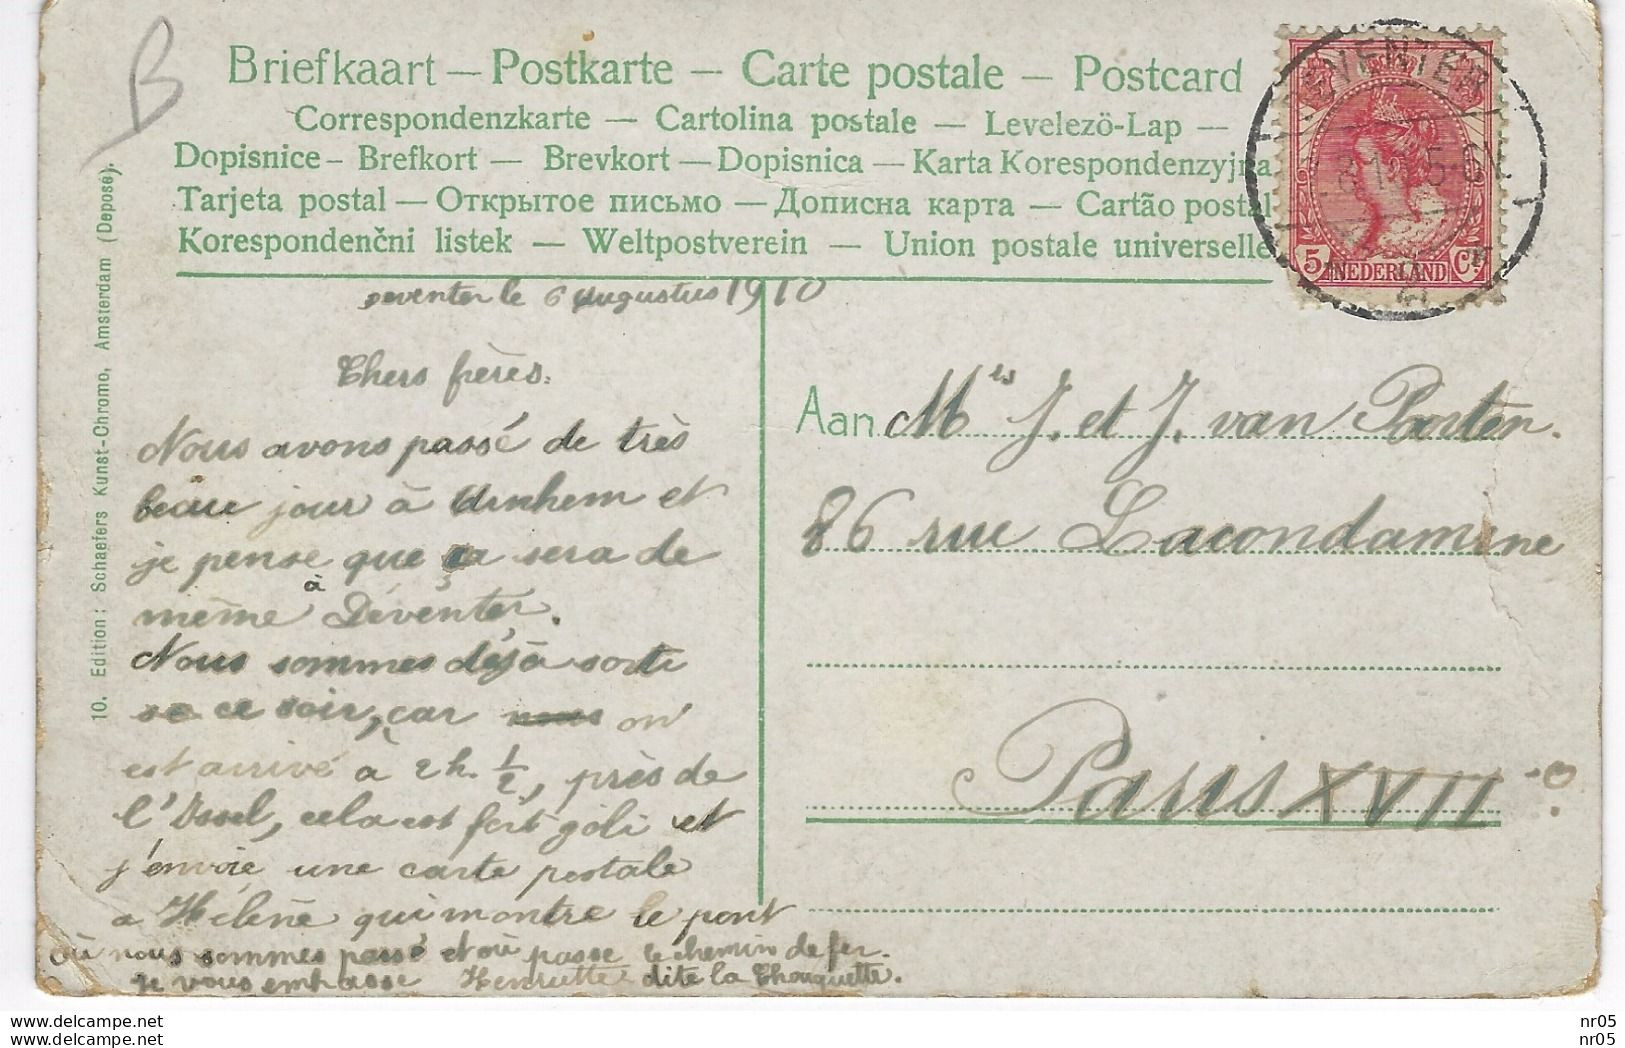 B
Briefkaart — Postkarte — Carte postale — Postcard
Correspondenzkarte — Cartolina postale — Levelezö-Lap —
Dopisnice – Brefkort — Brevkort — Dopisnica — Karta Korespondenzyjna
Tarjeta postal — Открытое письмо — Дописна карта — Cartão postal
Korespondenčni listek — Weltpostverein — Union postale universelle
10. Edition: Schaefers Kunst-Chromo, Amsterdam (Deposé).
DEVENTER
5 NEDERLAND Ct
2
deventer le 6 Augustus 1910
Chers frères.
Nous avons passé de très
beau jour à Arnhem et
je pense que ça sera de
même à Déventer.
Nous sommes déjà sorti
se ce soir, car nous on
est arrivé à 2h. 1/2, près de
l'Issel, cela est fort goli et
j'envoie une carte postale
a Hélène qui montre le pont
où nous sommes passé et où passe le chemin de fer.
je vous embrasse Henriette dite la Chouquette.
Aan Mrs J. et J. van Pasten.
86 rue Lacondamine
Paris XVII e.
www.delcampe.net
nr05
www.delcampe.net
nr05